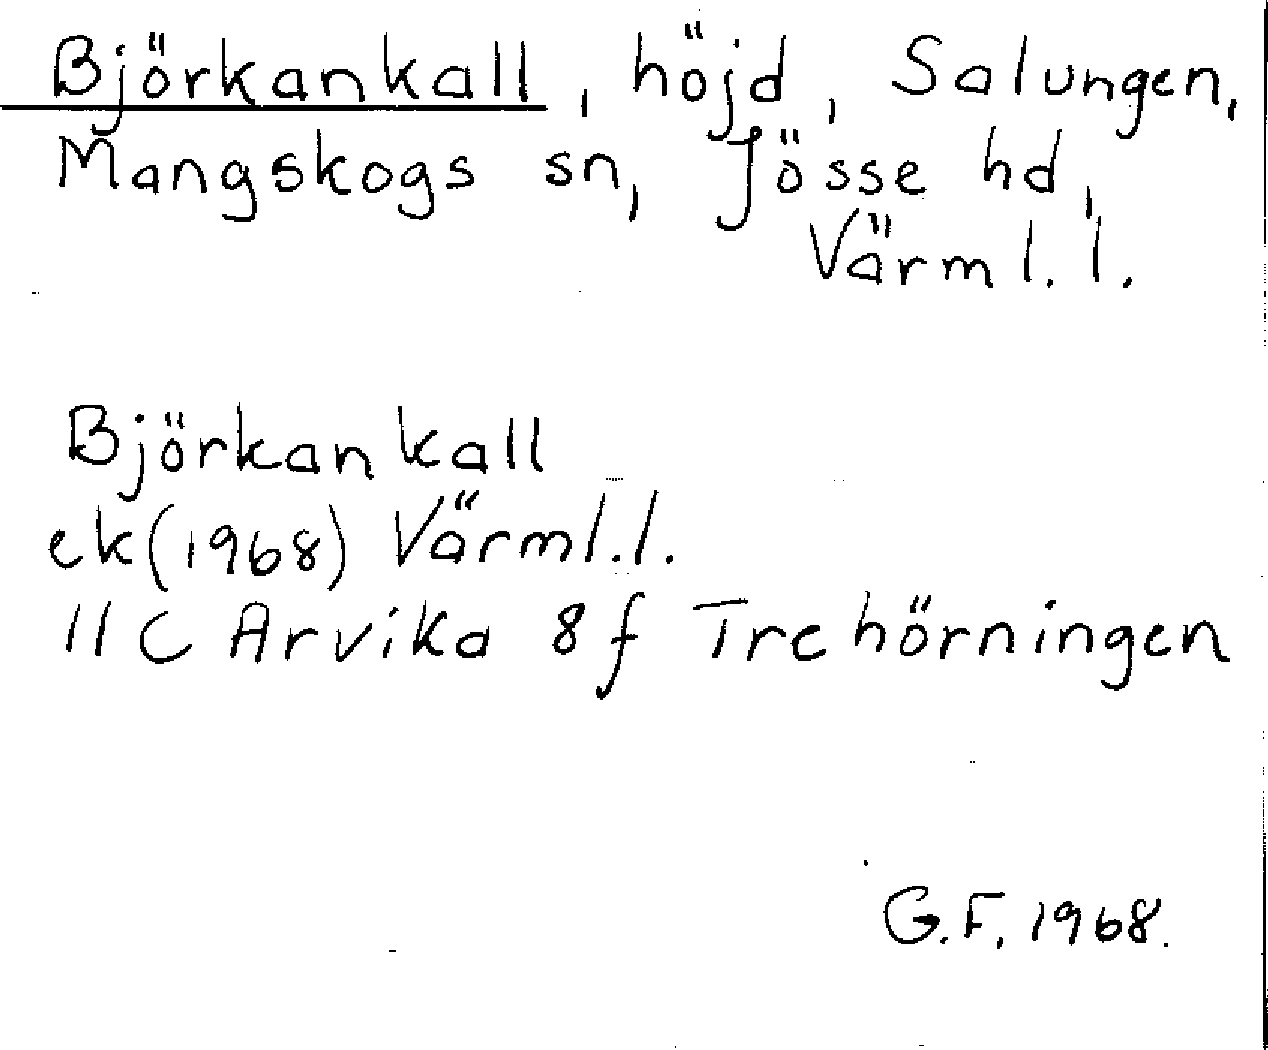 Björkankall, höjd, Salungen,
Mangskogs sn, Jösse hd,
Värml. l.
Björkankall
ek (1968) Värml. l.
11 C Arvika 8 f Trehörningen
G.F. 1968.